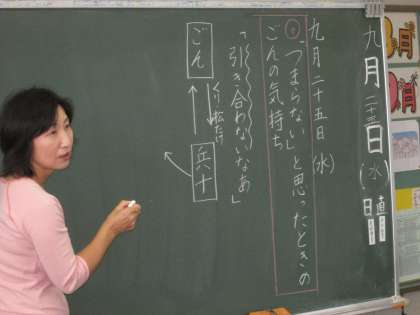 九月二十五日(水)
日直
九月二十五日(水)
「つまらない」と思ったときの
ごんの気持ち
「引き合わないなあ」
ごん
くり 松たけ
兵十